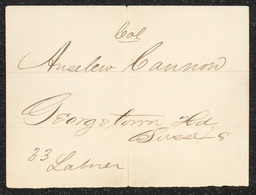 Col
Anselem Cannon
Georgetown Hd
Sussex
33
Laborer